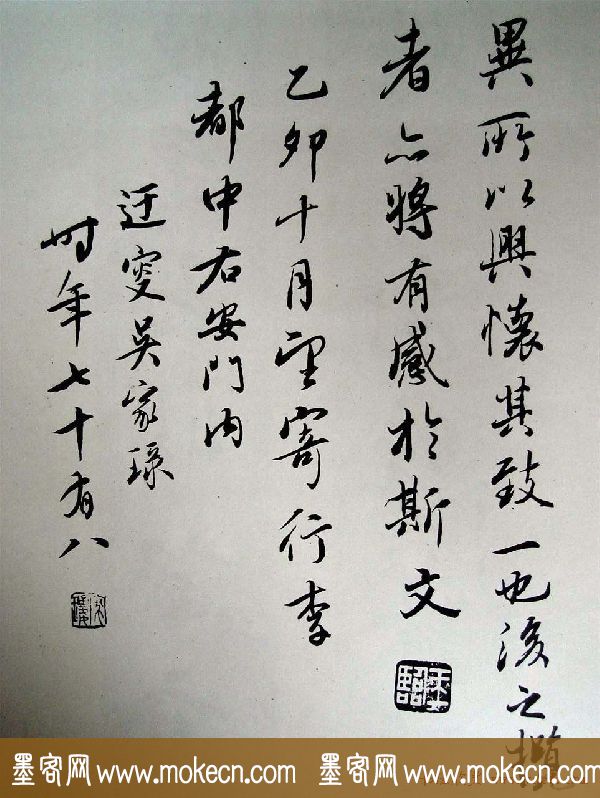 異所以興懷其致一也後之攬
者亦將有感於斯文
乙卯十月望寄行李
都中右安門内
迂叟吳家琭
时年七十有八
墨客网 www.mokecn.com 墨客网 www.mokecn.com